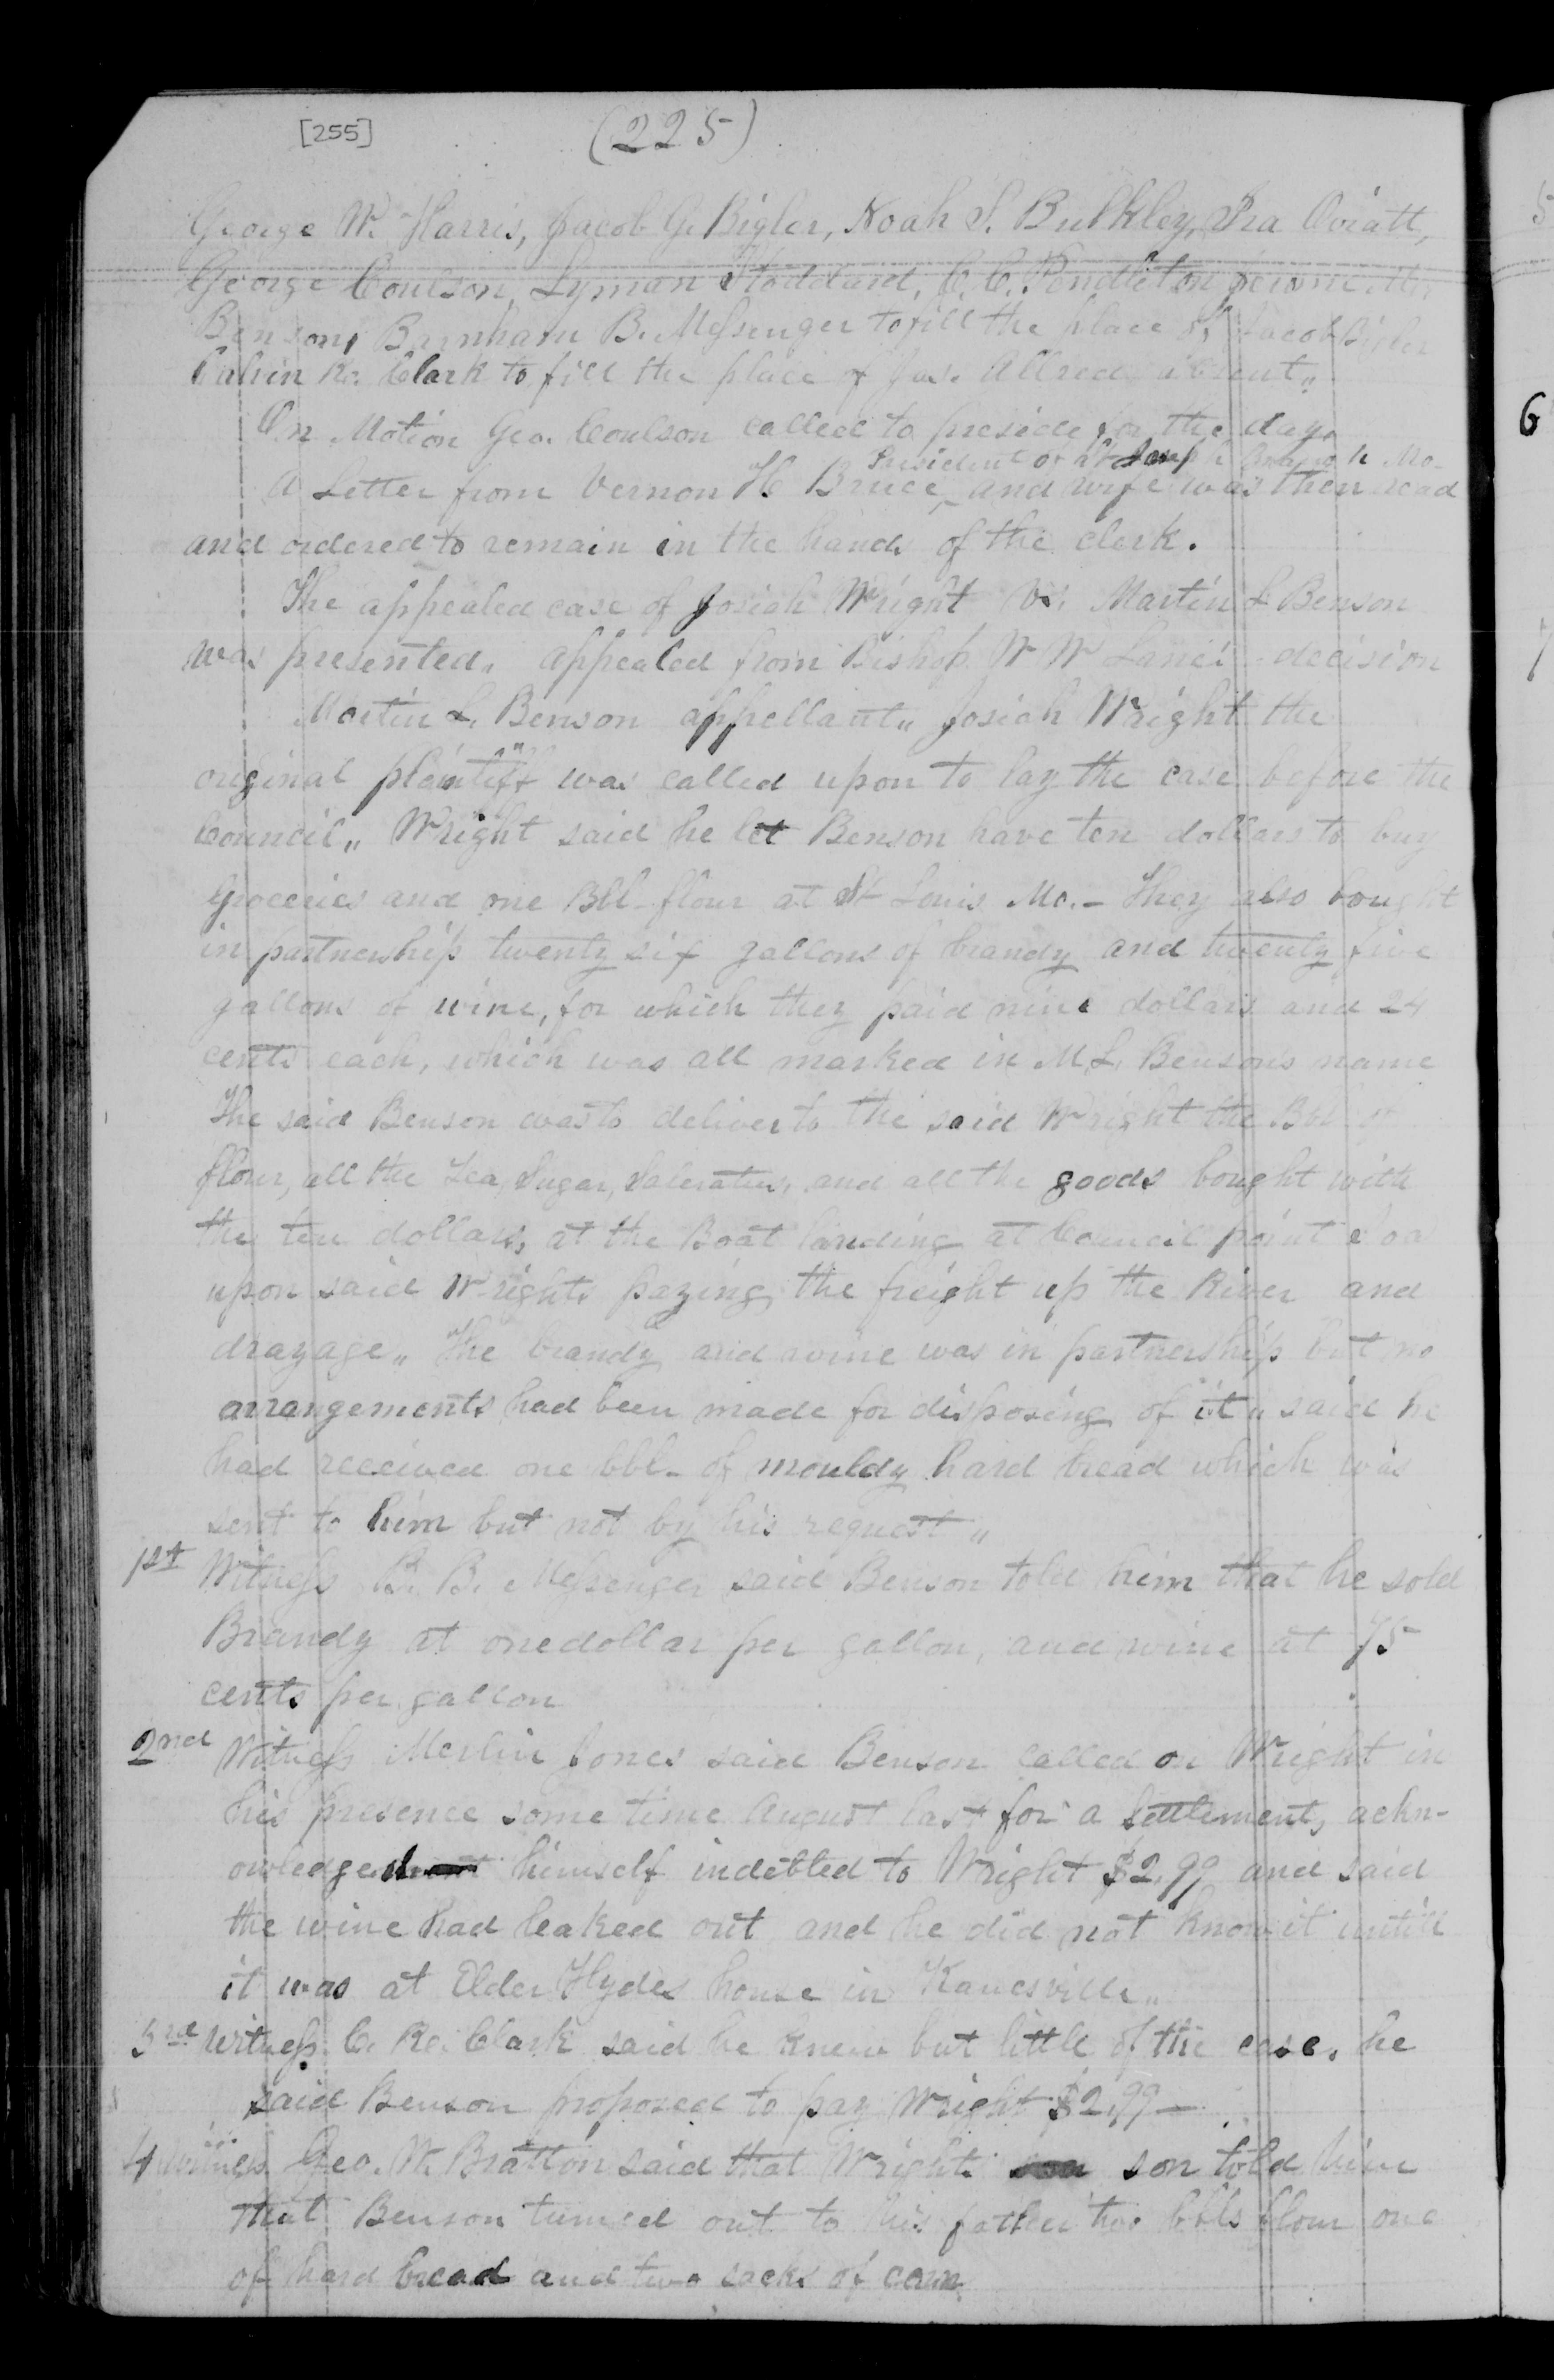 [255] (225)
George W. Harris, Jacob G. Bigler, Noah S. Bulkley, Ira Oviatt,
George Coulson, Lyman Stoddard, C. C. Pendleton, Jerome
Benson, Barnham B. Messenger to fill the place of Jacob Bigler
Calvin R. Clark to fill the place of Jas. Allred absent„
On Motion Geo. Coulson called to preside for the day.
President of St Joseph Branch Mo-
A Letter from Vernon H Bruce ^ and wife was then read
and ordered to remain in the hands of the clerk.
The appealed case of Josiah Wright Vs. Martin L Benson
was presented, appealed from Bishop W W Lane's decision
Martin L. Benson appellant„ Josiah Wright the
original plaintiff was called upon to lay the case before the
Council„ Wright said he let Benson have ten dollars to buy
groceries and one Bbl- flour at St Louis Mo.- They also bought
in partnership twenty six gallons of brandy and twenty five
gallons of wine, for which they paid nine dollars and 24
cents each, which was all marked in M, L, Bensons name
The said Benson was to deliver to the said Wright the Bbl of
flour, all the Tea, Sugar, Saleratus, and all the goods bought with
the ten dollars, at the Boat landing at Council point Ioa
upon said Wrights paying the freight up the River and
drayage„ The brandy and wine was in partnership but no
arrangements had been made for disposing of it„ said he
had received one bbl- of mouldy hard bread which was
sent to him but not by his request„
1st Witness B. B. Messenger said Benson told him that he sold
Brandy at one dollar per gallon, and wine at 75
cents per gallon
2nd Witness Merlin Jones said Benson called on Wright in
his presence some time August last for a settlement, ackn-
owledged himself indebted to Wright $2,99 and said
the wine had leaked out and he did not know it untill
it was at Elder Hydes house in Kanesville„
3rd Witness C. R. Clark said he knew but little of the case, he
said Benson proposed to pay Wright $2,99—
4 Witness Geo. W. Bratton said that Wrights son told him
that Benson turned out to his father two bbls flour one
of hard bread and two sacks of corn
6